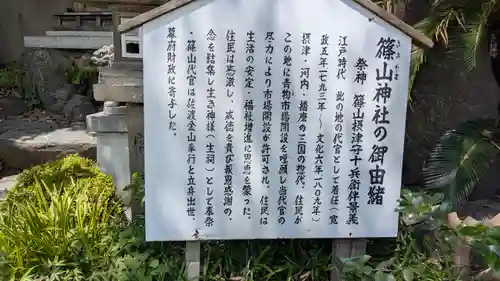 篠山神社の御由緒
祭神 篠山摂津守十兵衛伴景義
江戸時代 此の地の代官として着任(寛
政五年一七九三年〜文化六年一八〇九年)
摂津・河内・播磨の三国の惣代、住民が
この地に青物市場開設を嘆願し当代官の
尽力により市場開設が許可され、住民は
生活の安定・福祉増進に恩恵を蒙った。
住民は感激し、威徳を貴び報恩感謝の、
念を結集し生き神様(生祠)として奉斎
・篠山代官は佐渡金山奉行と立身出世、
幕府財政に寄与した。